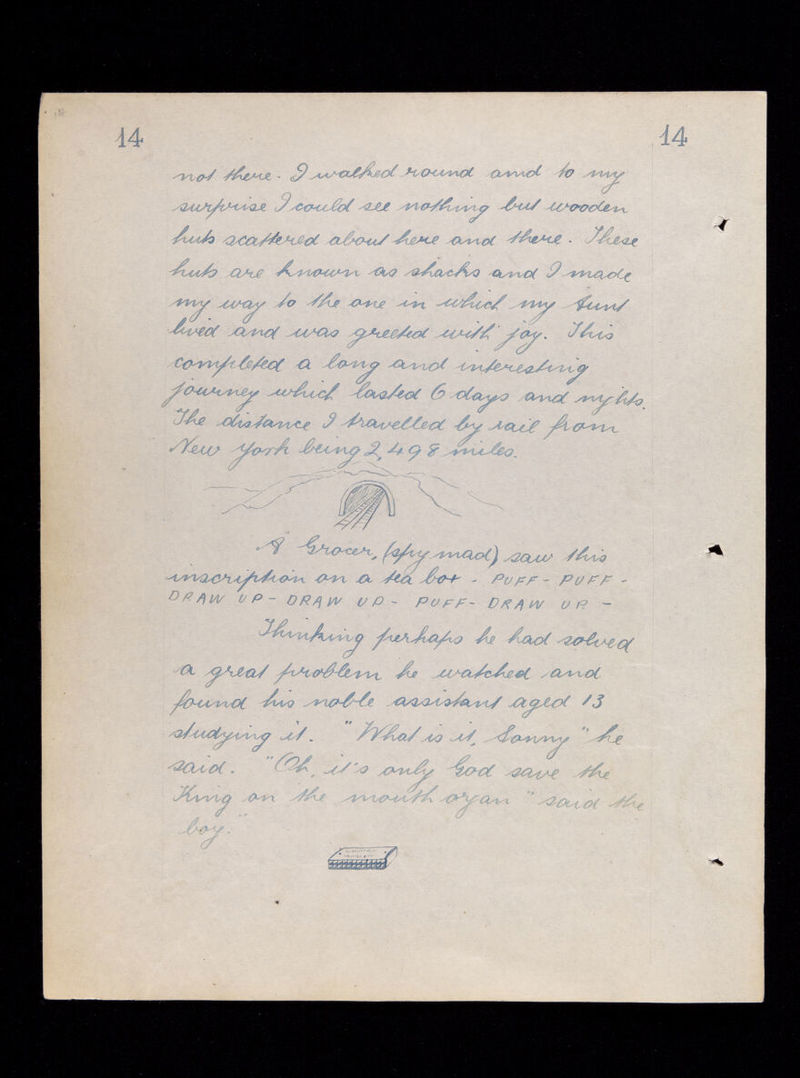 14 14
not there. I walked round and to my
surprise I could see nothing but wooden
huts scattered about here and there. These
huts are known as shacks and I made
my way to the one in which my Aunt
lived and was greeted with joy. This
completed a long and interesting
journey which lasted 6 days and nights.
The distance I travelled by rail from
New York being 2,498 miles.
A Grocer, (spy mad) saw this
inscription on a tea box - PUFF - PUFF -
DRAW UP - DRAW UP - PUFF - DRAW UP -
Thinking perhaps he had solved
a great problem he watched and
found his noble assistant aged 13
studying it. "What is it, Sonny" he
said. "Oh, it's only God save the
King on the mouth organ" said the
boy."